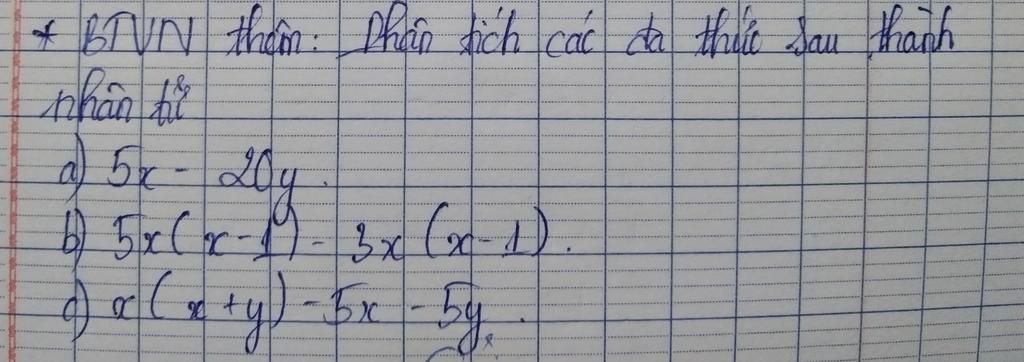 * BTVN thêm: Phân tích các đa thức sau thành
nhân tử
a) 5x - 20y.
b) 5x(x-1) - 3x(x-1).
c) x(x+y) - 5x - 5y.